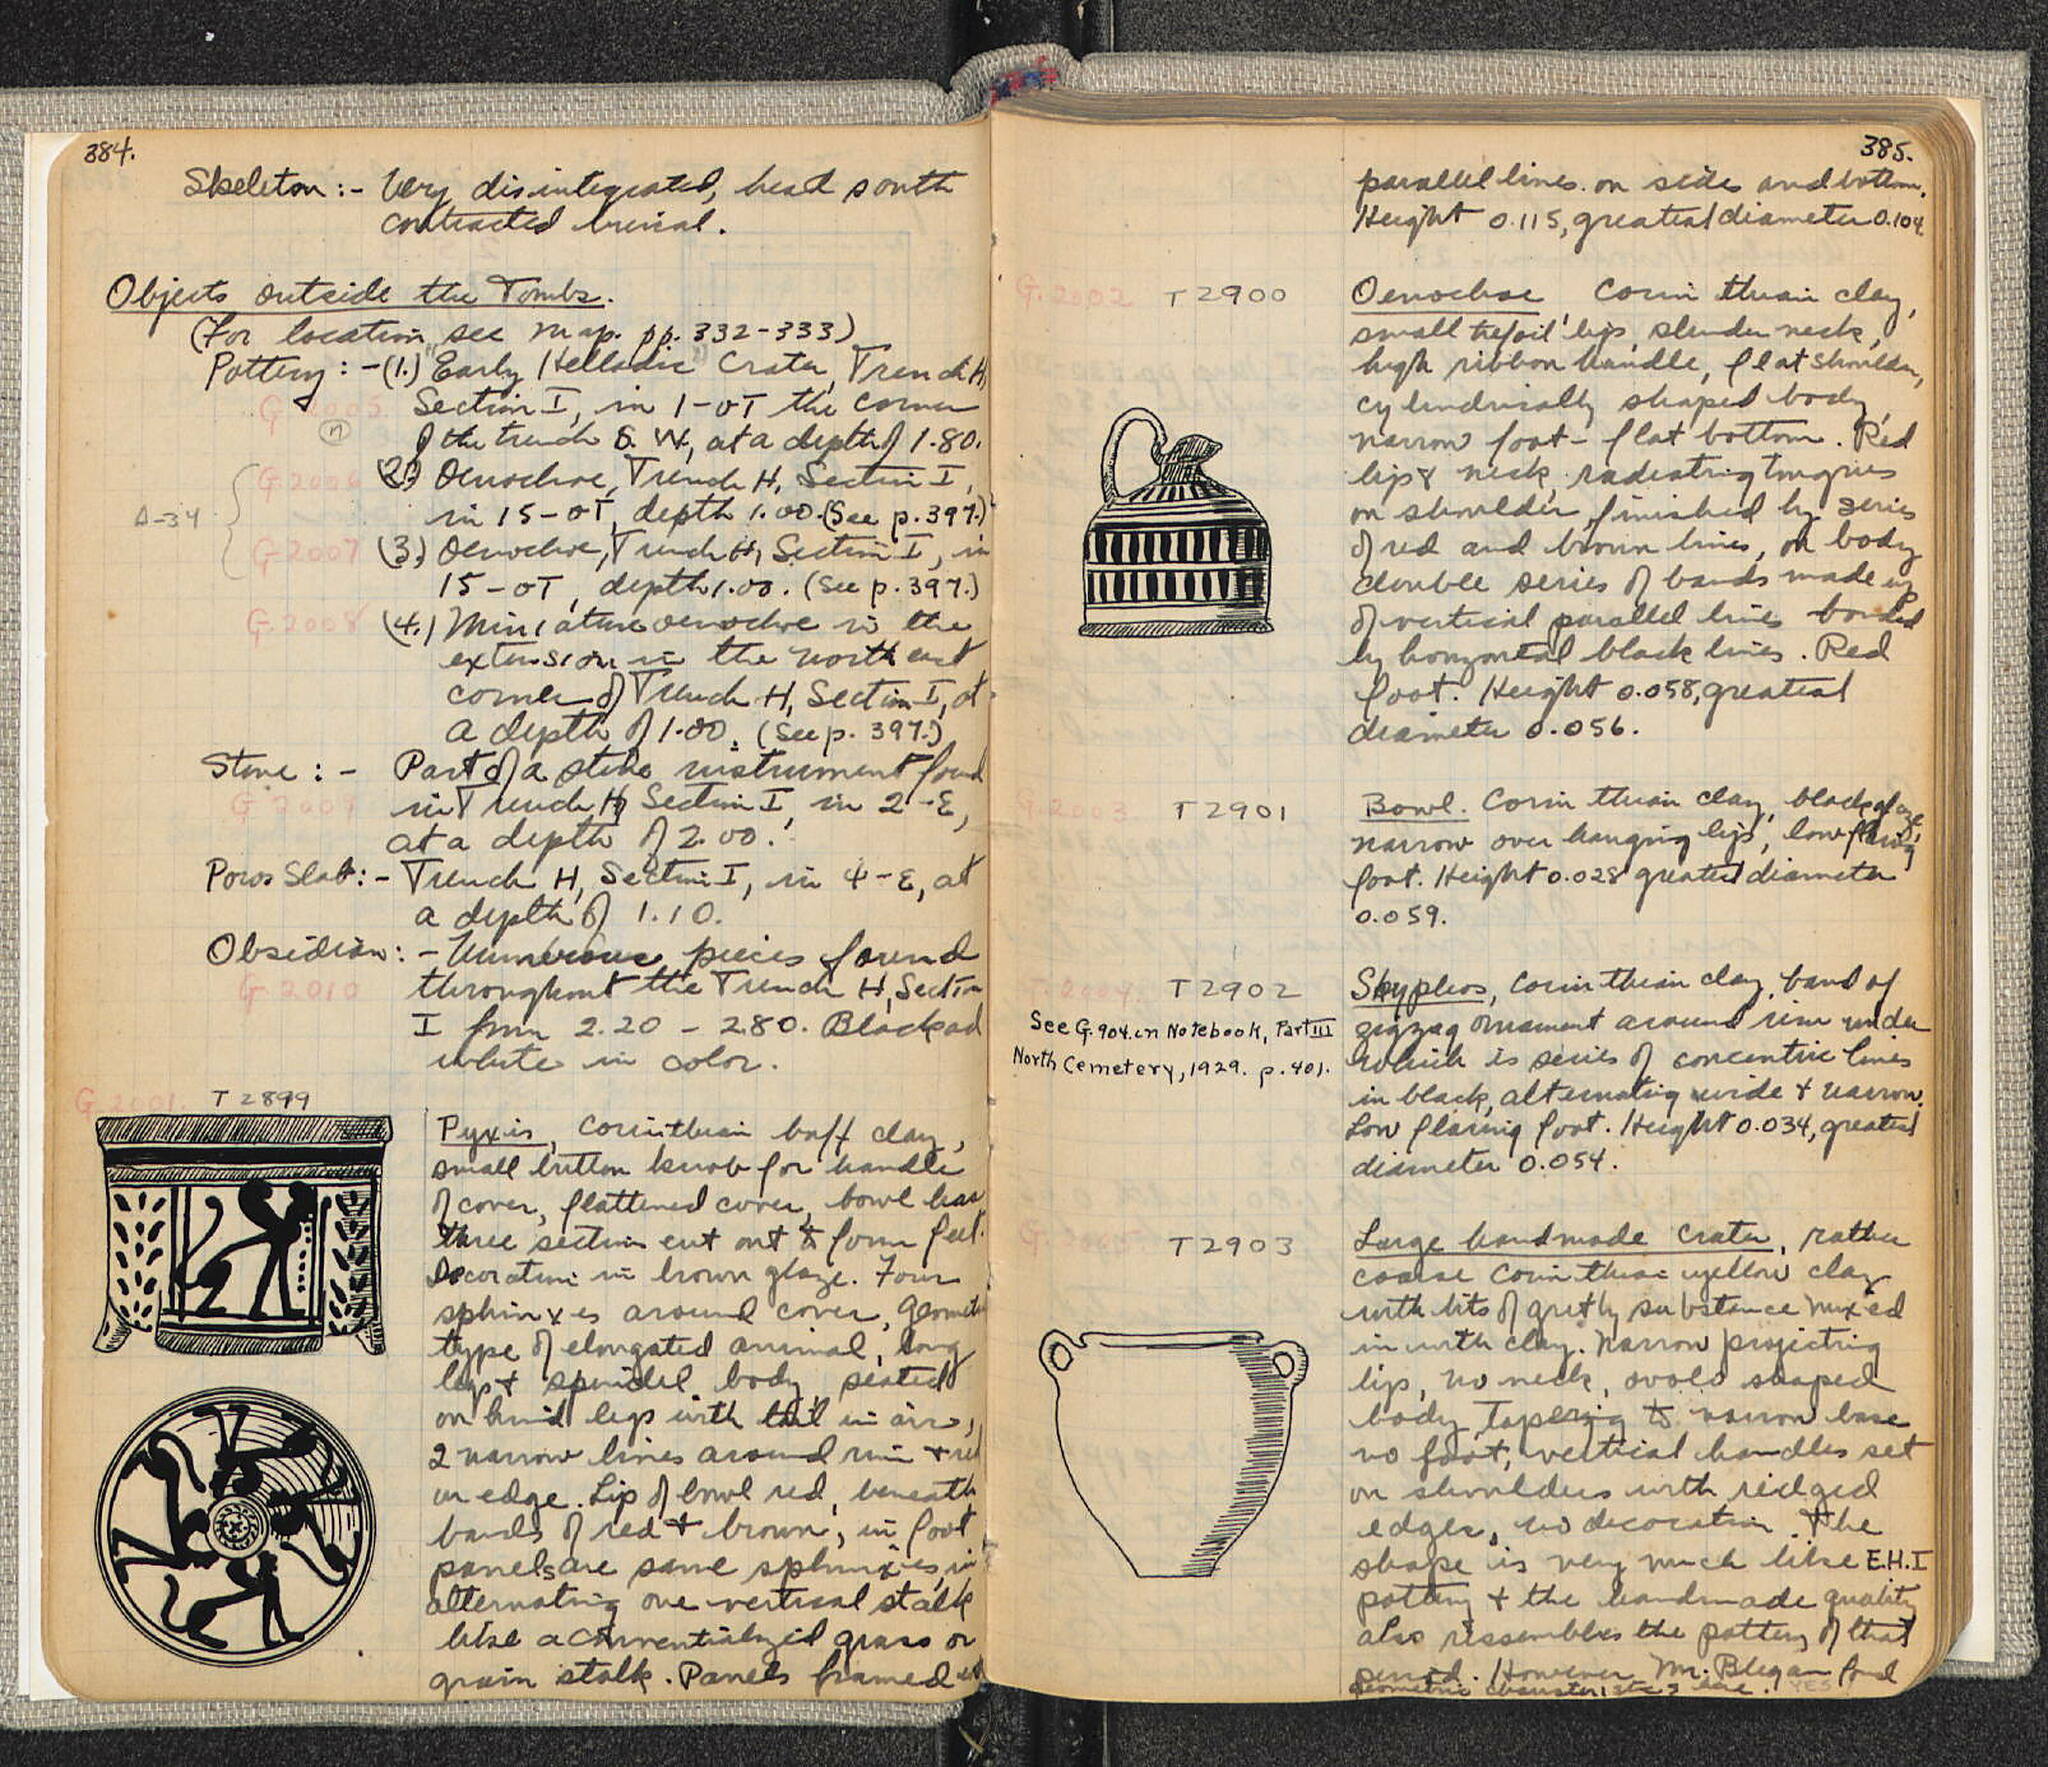 384.
Skeleton :- Very disintegrated, head south
contracted burial.
Objects outside the Tombs.
(For location, see map. pp. 332-333)
Pottery :- (1.) "Early Helladic" Crater, Trench H,
G 2005 Section I, in 1-OT the corner
(n) of the trench S. W, at a depth of 1.80.
G 2006 (2.) Oenochoe, Trench H, Section I,
Δ-34 in 15-OT, depth 1.00. (See p. 397.)
G 2007 (3.) Oenochoe, Trench H, Section I, in
15-OT, depth 1.00. (See p. 397.)
G. 2008 (4.) Miniature oenochoe in the
extension in the north east
corner of Trench H, Section I, at
a depth of 1.00. (See p. 397.)
Stone :- Part of a stone instrument found
G 2009 in Trench H, Section I, in 2-E,
at a depth of 2.00.
Poros Slab :- Trench H, Section I, in 4-E, at
a depth of 1.10.
Obsidian :- Numerous pieces found
G. 2010 throughout the Trench H, Section
I from 2.20 - 2.80. Black and
white in color.
G. 2001. T 2899
Pyxis, Corinthian buff clay,
small button knob for handle
of cover, flattened cover, bowl has
three sections cut out to form feet.
Decoration in brown glaze. Four
sphinxes around cover, Geometric
type of elongated animal, long
legs & spindel body, seated
on hind legs with tail in air,
2 narrow lines around rim & red
on edge. Lip of bowl red, beneath
bands of red & brown, in foot
panels are same sphinxes, in
alternating one vertical stalk
like a conventionalized grass or
grain stalk. Panels framed with
385.
parallel lines on sides and bottom.
Height 0.115, greatest diameter 0.104.
G. 2002 T 2900 Oenochoe, Corinthian clay,
small trefoil lip, slender neck,
high ribbon handle, flat shoulder,
cylindrically shaped body,
narrow foot - flat bottom. Red
lip & neck, radiating tongues
on shoulder, finished by series
of red and brown lines, on body
double series of bands made up
of vertical parallel lines bonded
by horizontal black lines. Red
foot. Height 0.058, greatest
diameter 0.056.
G. 2003 T 2901 Bowl. Corinthian clay, black glaze,
narrow over hanging lip, low flaring
foot. Height 0.028 greatest diameter
0.059.
G. 2004. T 2902 Skyphos, Corinthian clay, band of
See G. 904. in Notebook, Part III
North Cemetery, 1929. p. 401.
zigzag ornament around rim under
which is series of concentric lines
in black, alternating wide & narrow.
Low flaring foot. Height 0.034, greatest
diameter 0.054.
T 2903 Large handmade crater, rather
coarse Corinthian yellow clay
with bits of gritty substance mixed
in with clay. Narrow projecting
lip, no neck, ovolo shaped
body, tapering to narrow base
no foot, vertical handles set
on shoulders with ridged
edges, no decoration. The
shape is very much like E.H.I
pottery & the handmade quality
also ressembles the pottery of that
period. However Mr. Blegen found
geometric characteristics here. YES